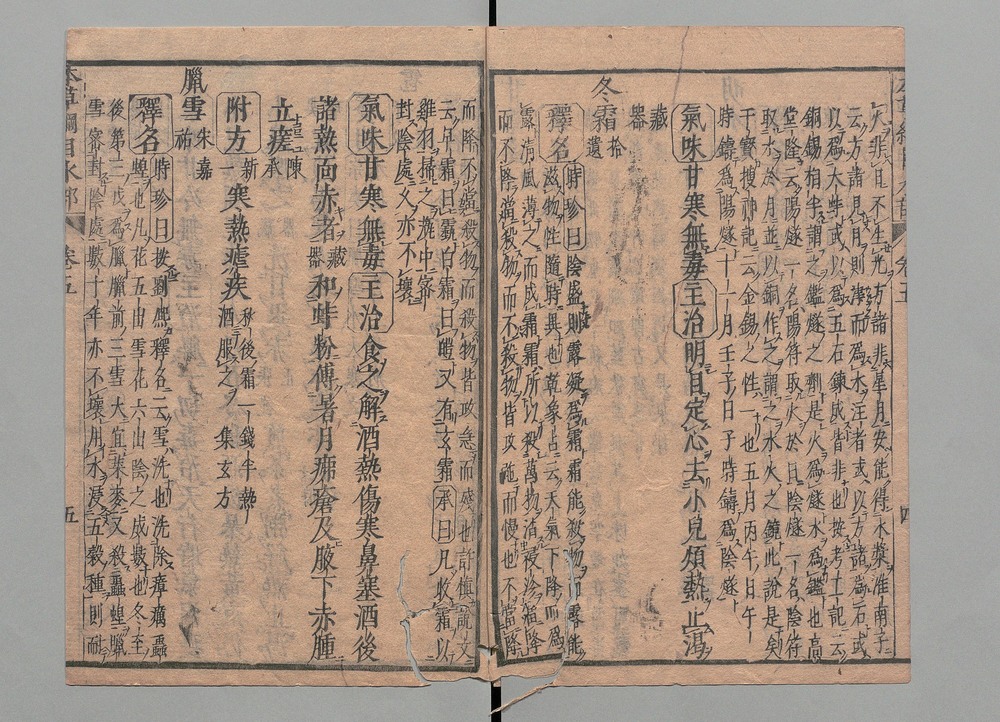 火非日不生光方諸非星月安能得水藥准南子
云方諸見月則津而為水注者或以方諸為石或
以為大蚌或以為五石鍊成皆非也按考工記云
銅錫相半謂之鑑燧之劑是火為燧水為鑑也高
堂隆云陽燧一名陽符取火於日陰燧一名陰符
取水於月並以銅作之謂之水火之鏡此說是矣
干寶搜神記云金錫之性一也五月丙午日午
時鑄為陽燧十一月壬子日子時鑄為陰燧
氣味甘寒無毒主治明目定心去小兒煩熱止渴
藏器
冬霜拾遺
釋名時珍曰陰盛則露凝為霜霜能殺物而露能
滋物性隨時異也乾象占云天氣下降而為
露清風薄之而成霜霜所以殺萬物消祲沴當降
而不降當殺物而不殺物皆政弛而慢也不當降
本草綱目水部 卷五 五
而降不當殺物而殺物皆政急而殘也許慎說文
云早霜曰霸白霜曰皚又有玄霜承曰凡收霜以
雞羽掃之瓶中密
封陰處久亦不壞
氣味甘寒無毒主治食之解酒熱傷寒鼻塞酒後
諸熱面赤者藏器和蚌粉傅暑月疿瘡及腋下赤腫
立瘥陳承
附方新一寒熱瘧疾秋後霜一錢半熱酒服之集玄方
臘雪朱嘉祐
釋名時珍曰按劉熙釋名云雪洗也洗除瘴癘蟲
蝗也凡花五出雪花六出陰之成數也冬至
後第三戊為臘臘前三雪大宜菜麥又殺蟲蝗臘
雪密封陰處數十年亦不壞用水浸五穀種則耐